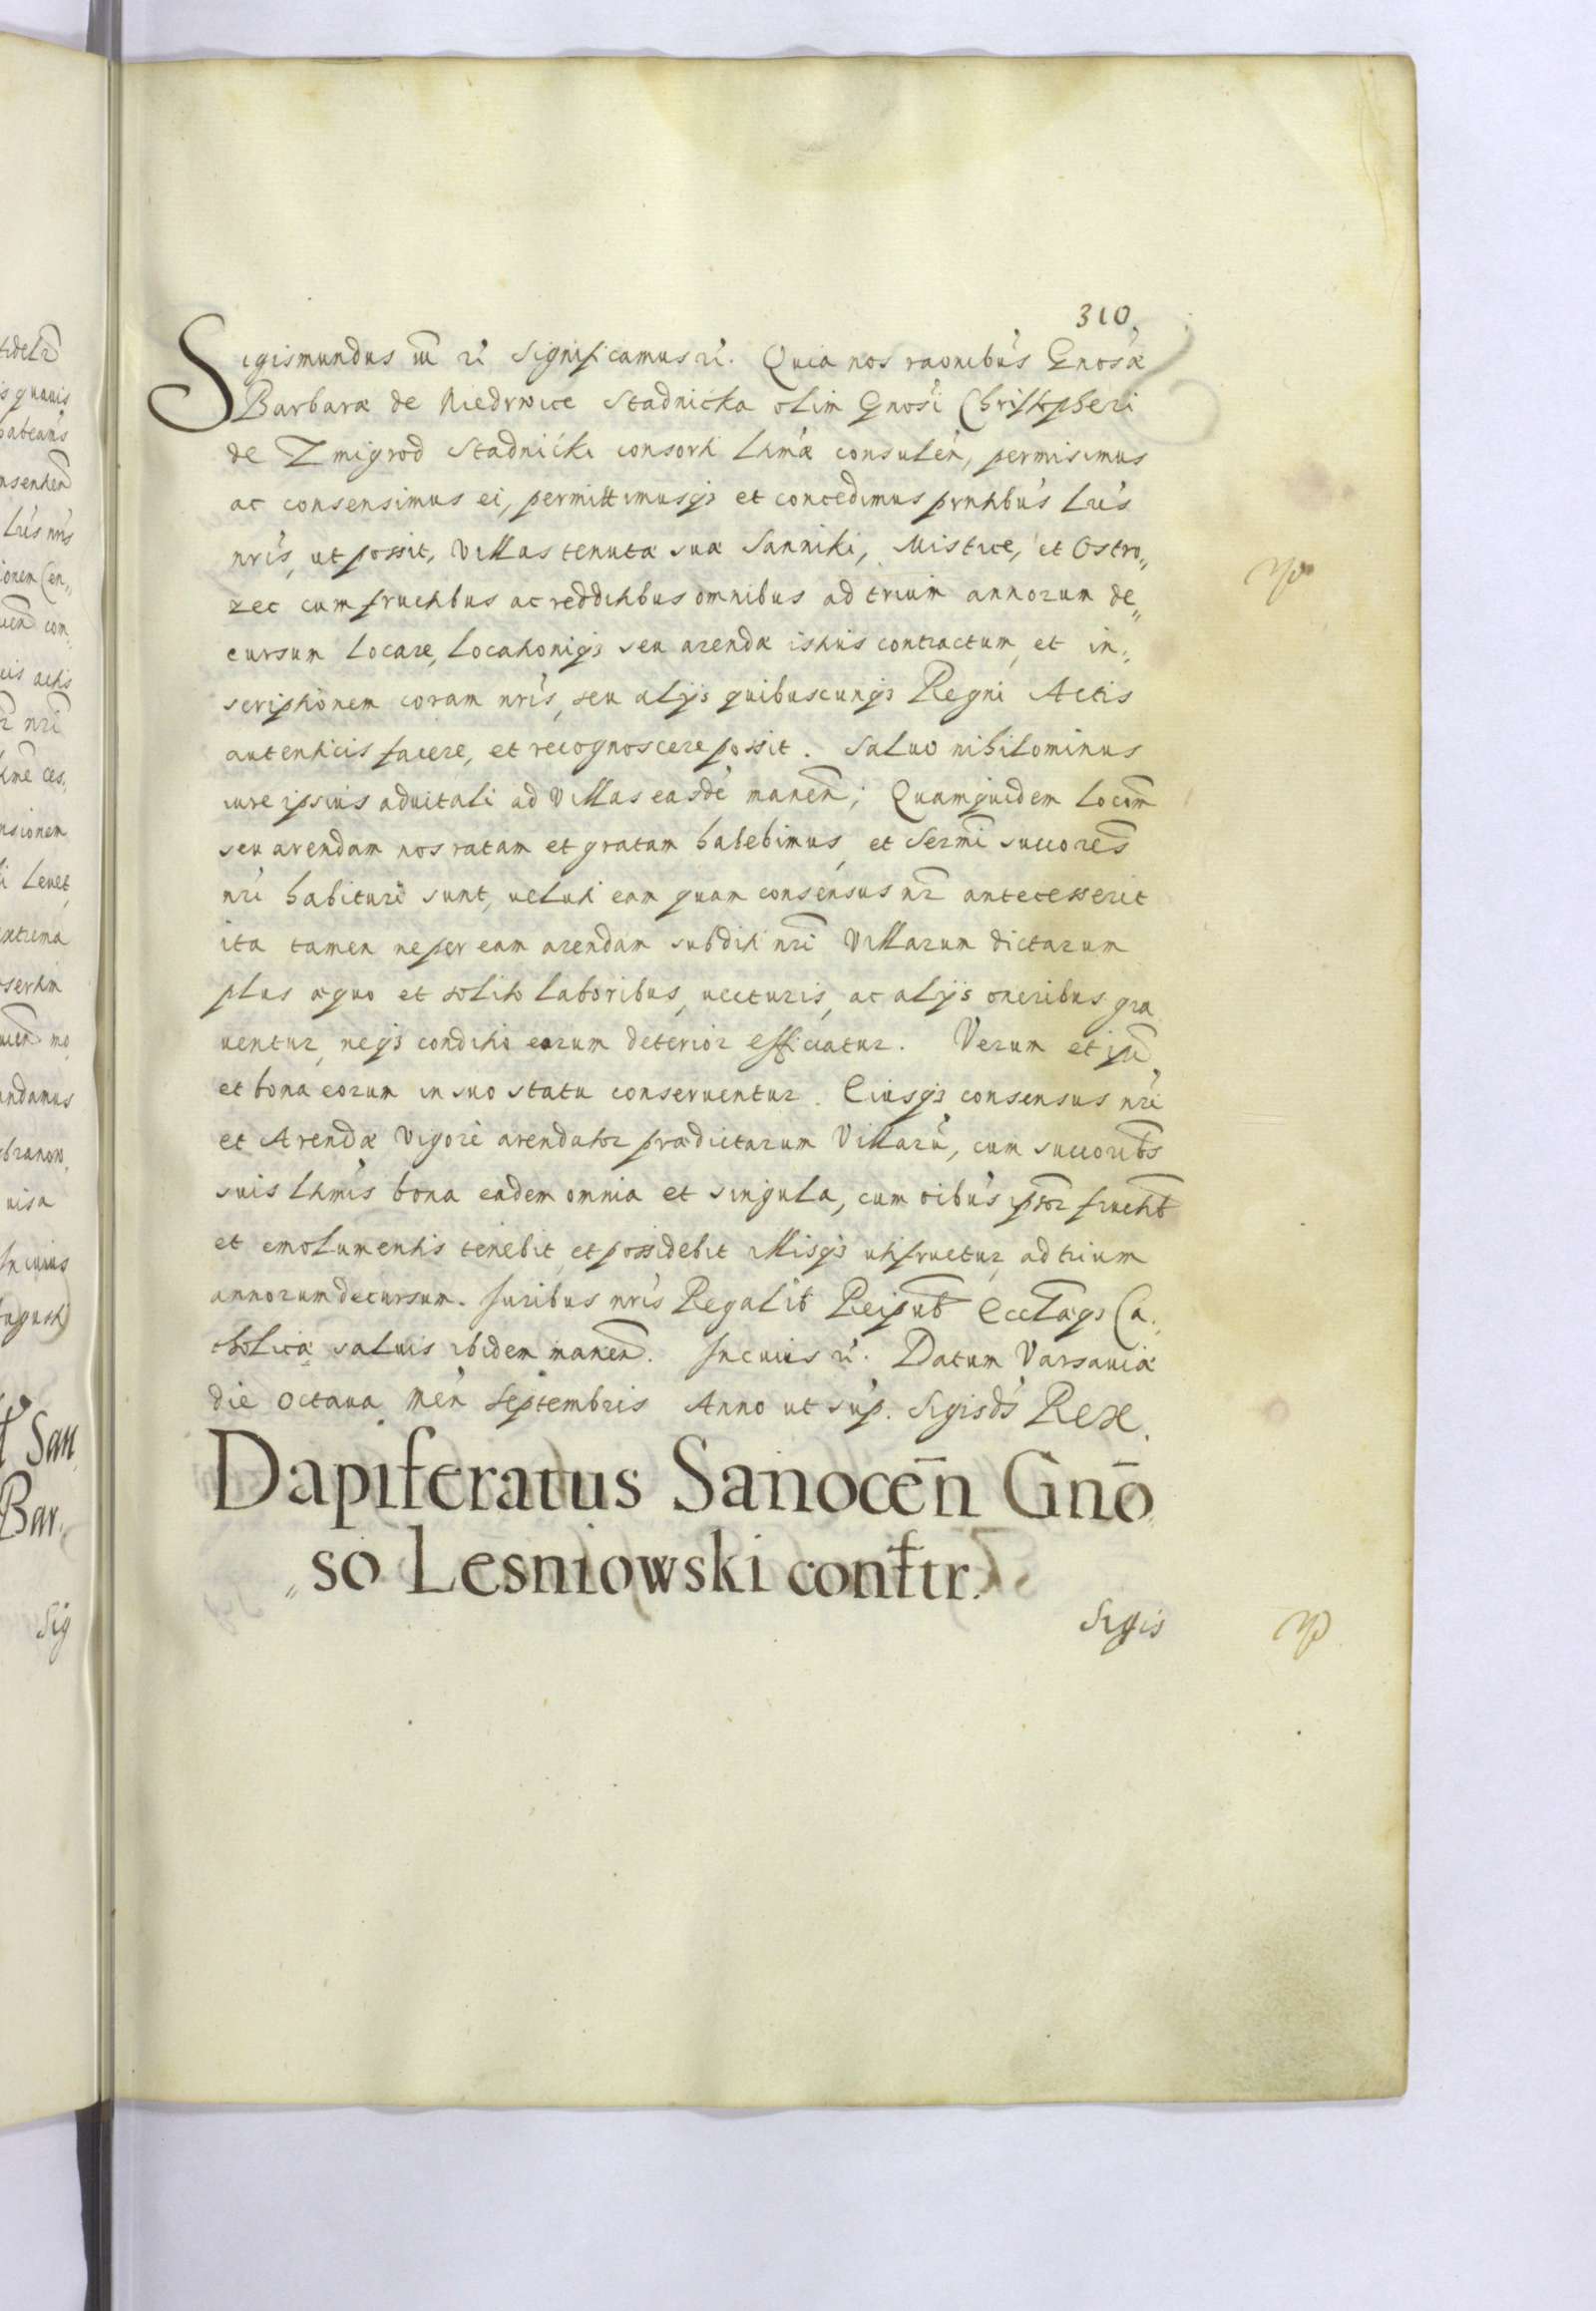 310.
Sigismundus iii ri Significamus ri. Quia nos raonibus Gnosæ
Barbaræ de Niedrwice Stadnicka olim Gnosi Christopheri
de Zmigrod Stadnicki consorti Ltmæ consulen, permisimus
ac consensimus ei, permittimusq3 et concedimus prntibus Lris
nris, ut possit, Villas tenutæ suæ Sanniki, Mistice, et Ostro„
zec cum fructibus ac redditibus omnibus ad trium annorum de„
cursum Locare, Locationisq3 seu arendæ istius contractum, et in„
scriptionem coram nris, seu alijs quibuscunq3 Regni Actis
autenticis facere, et recognoscere possit. Saluo nihilominus
iure ipsius aduitali ad Villas easde manen; Quamquidem Locom
seu arendam nos ratam et gratam habebimus, et Sermi succores
nri habituri sunt, ueluti eam quam consensus nr antecesserit
ita tamen ne per eam arendam subditi nri Villarum dictarum
plus æquo et solito Laboribus, uecturis, ac alijs oneribus gra
uentur, neq3 conditio eorum deterior efficiatur. Verum et ipsi,
et bona eorum in suo statu conseruentur. Eiusq3 consensus nri
et Arendæ vigore arendator prædictarum Villaru, cum succoribs
suis Ltmis bona eadem omnia et singula, cum oibus ipsor fructib
et emolumentis tenebit, et possidebit illisq3 utifruetur, ad trium
annorum decursum. Juribus nris Regalib Reipub Ecclæq3 Ca„
tholicæ saluis ibidem manen. In cuius ri. Datum Varsauiæ
die Octaua men Septembris Anno ut sup. Sigisds Rex.
Dapiferatus Sanocen Gno
„so Lesniowski conftr.
Sigis